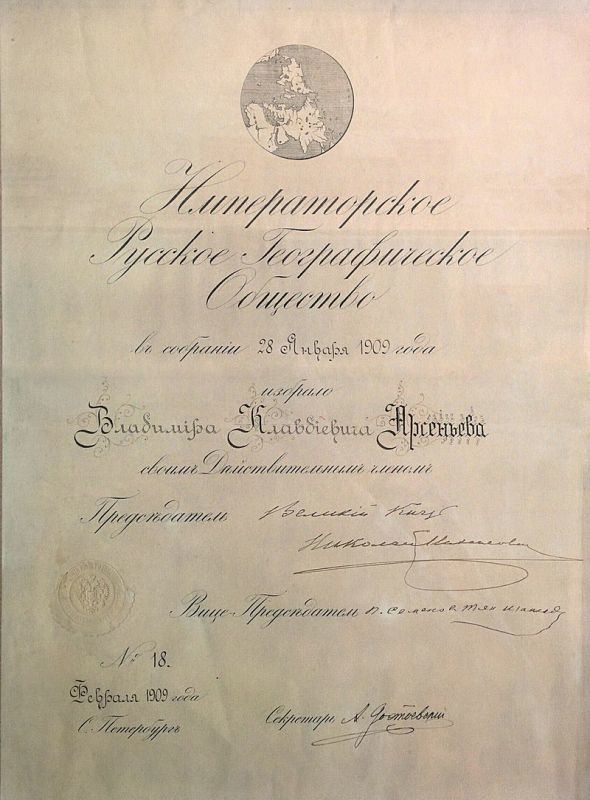 Императорское
Русское Географическое
Общество
въ собраніи 28 Января 1909 года
избрало
Владиміра Клавдіевича Арсеньева
своимъ Дѣйствительнымъ членомъ
Предсѣдатель Великій Князь
Николай Михаиловичъ
Вице-Предсѣдатель П. Семеновъ Тянъ Шанскій
№ 18.
Февраля 1909 года
С. Петербургъ
Секретарь А. Достоевскій